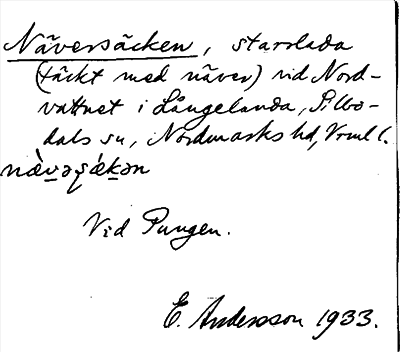 Näversäcken, starrlada
(täckt med näver) vid Nord-
vattnet i Långelanda, Silbo-
dals sn, Nordmarks hd, Vrml l.
nä̀vəṣä́kən
Vid Pungen.
E. Andersson 1933.